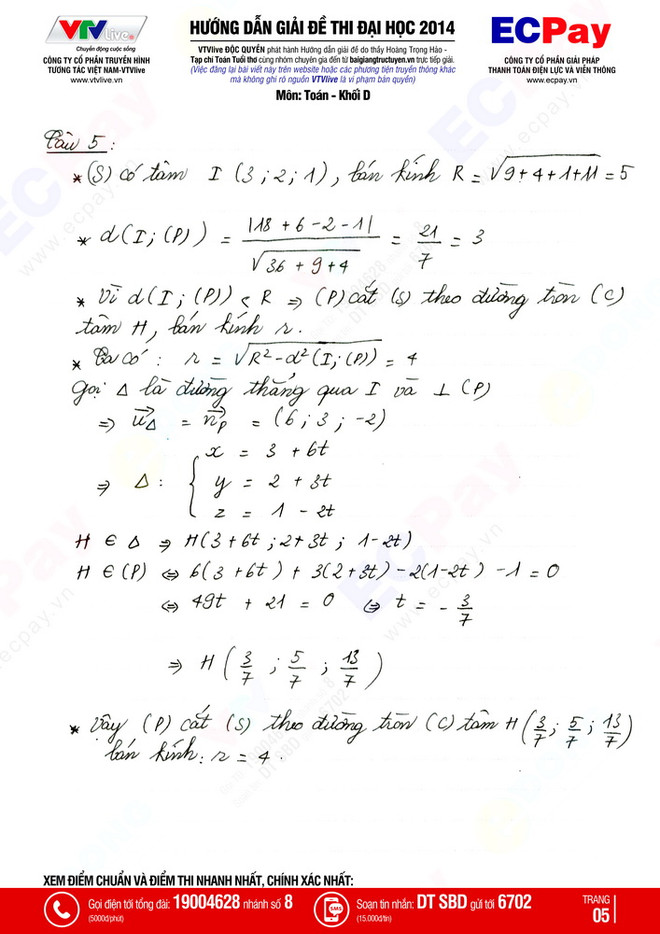 VTVLive
Chuyển động cuộc sống
CÔNG TY CỔ PHẦN TRUYỀN HÌNH
TƯƠNG TÁC VIỆT NAM-VTVlive
www.vtvlive.vn
HƯỚNG DẪN GIẢI ĐỀ THI ĐẠI HỌC 2014
VTVlive ĐỘC QUYỀN phát hành Hướng dẫn giải đề do thầy Hoàng Trọng Hảo -
Tạp chí Toán Tuổi thơ cùng nhóm chuyên gia đến từ baigiangtructuyen.vn trực tiếp giải.
(Việc đăng lại bài viết này trên website hoặc các phương tiện truyền thông khác
mà không ghi rõ nguồn VTVlive là vi phạm bản quyền)
Môn: Toán - Khối D
ECPay
CÔNG TY CỔ PHẦN GIẢI PHÁP
THANH TOÁN ĐIỆN LỰC VÀ VIỄN THÔNG
www.ecpay.vn
Câu 5:
* (S) có tâm I (3 ; 2 ; 1), bán kính R = √(9+4+1+11) = 5
* d(I ; (P)) = |18 + 6 - 2 - 1| / √(36 + 9 + 4) = 21/7 = 3
* Vì d(I ; (P)) < R ⇒ (P) cắt (S) theo đường tròn (C)
tâm H, bán kính r.
* Ta có : r = √(R² - d²(I;(P))) = 4
Gọi Δ là đường thẳng qua I và ⊥ (P)
⇒ u⃗_Δ = n⃗_P = (6 ; 3 ; -2)
x = 3 + 6t
⇒ Δ : { y = 2 + 3t
z = 1 - 2t
H ∈ Δ ⇒ H(3 + 6t ; 2+3t ; 1-2t)
H ∈ (P) ⇔ 6(3 + 6t) + 3(2 + 3t) - 2(1-2t) - 1 = 0
⇔ 49t + 21 = 0 ⇔ t = - 3/7
⇒ H (3/7 ; 5/7 ; 13/7)
* Vậy (P) cắt (S) theo đường tròn (C) tâm H (3/7 ; 5/7 ; 13/7)
bán kính: r = 4.
XEM ĐIỂM CHUẨN VÀ ĐIỂM THI NHANH NHẤT, CHÍNH XÁC NHẤT:
Gọi điện tới tổng đài: 19004628 nhánh số 8
(5000đ/phút)
SMS
Soạn tin nhắn: DT SBD gửi tới 6702
(15.000đ/tin)
TRANG
05